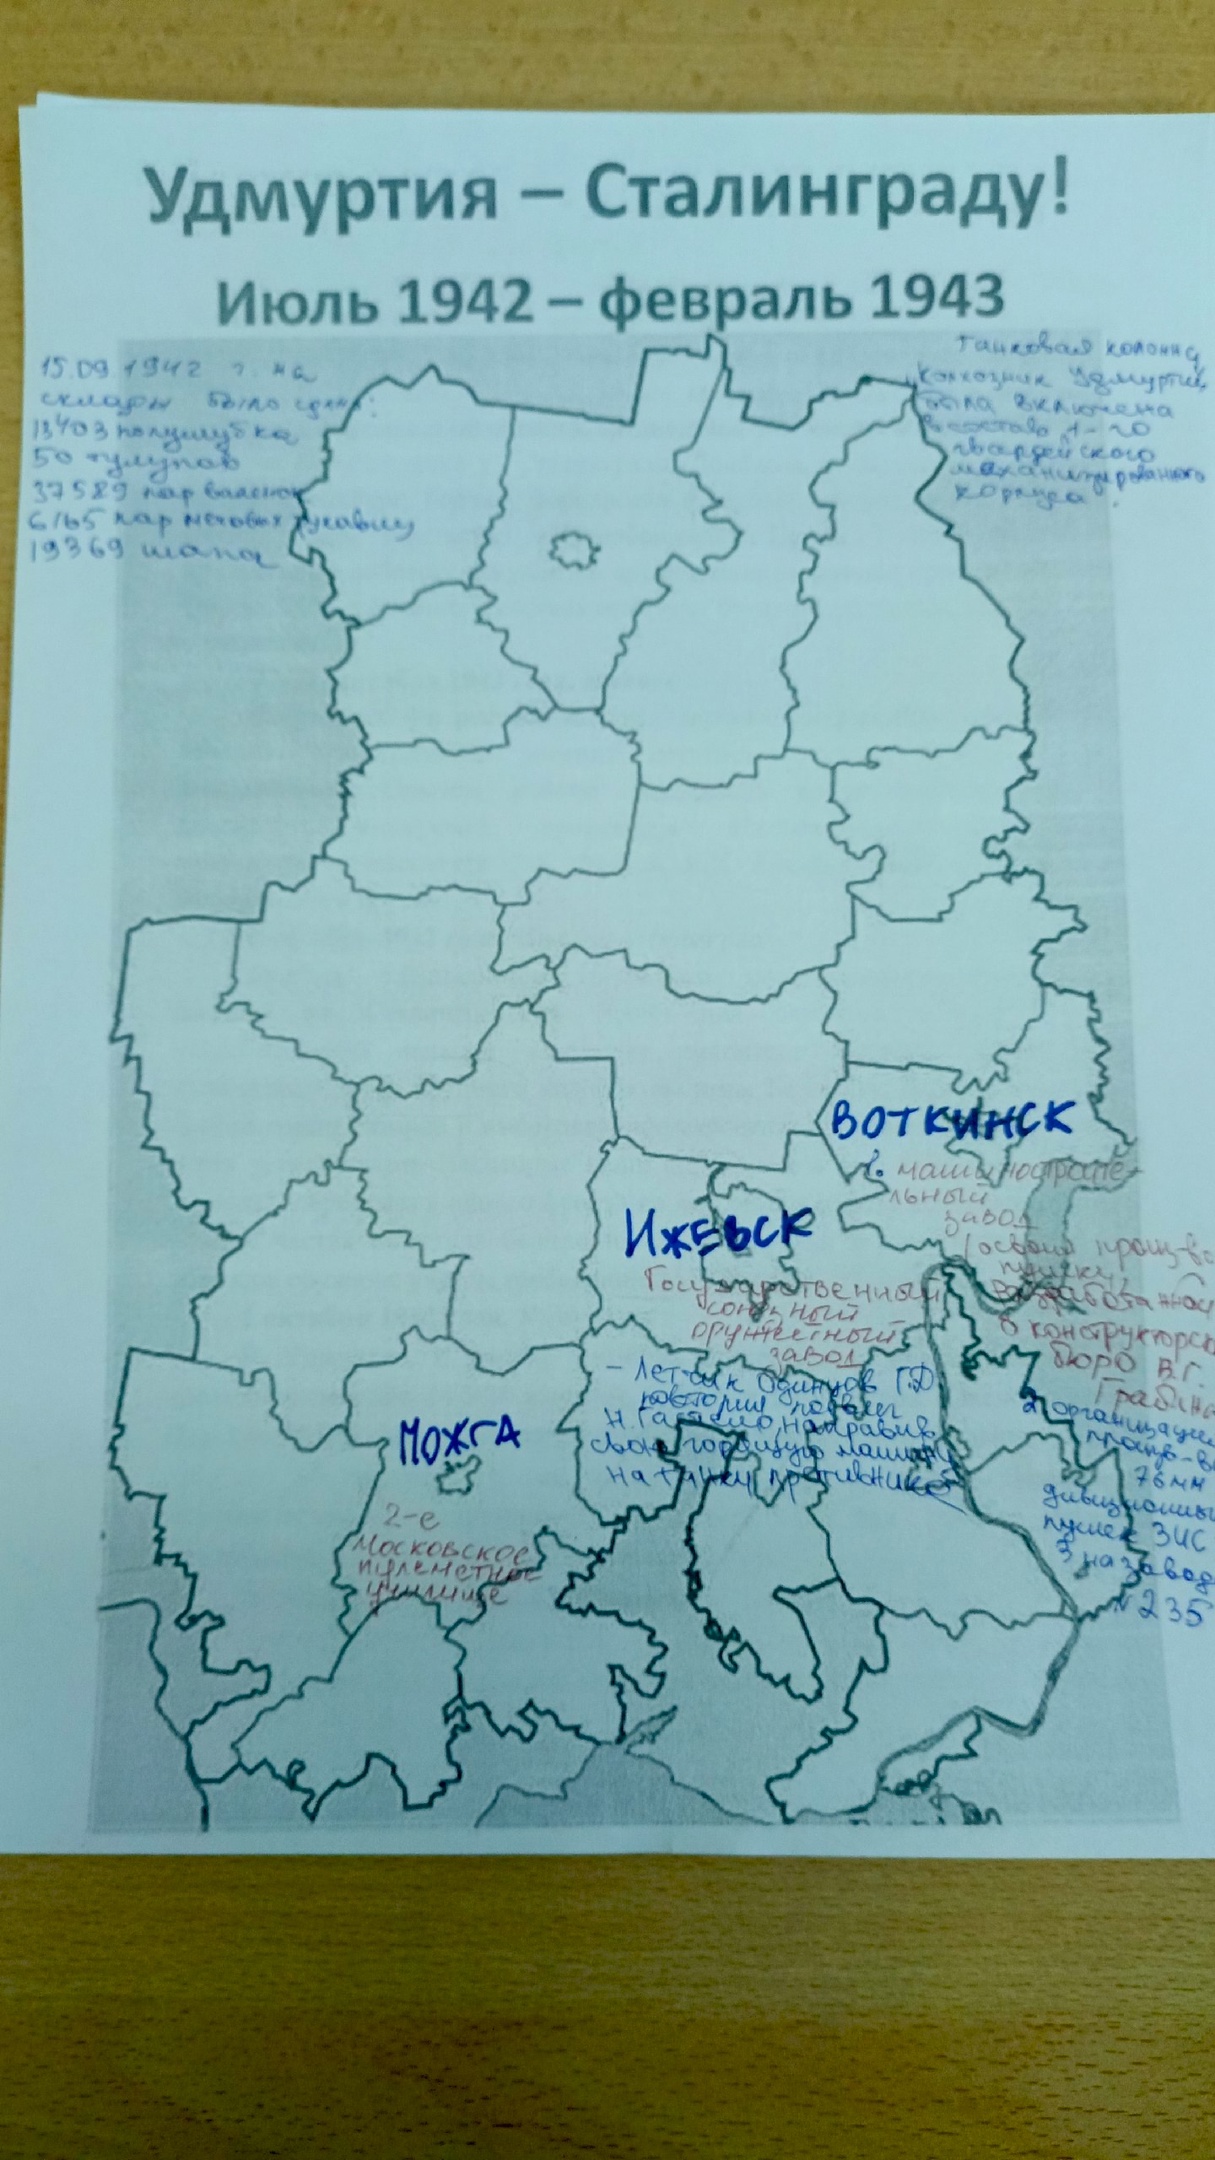 Удмуртия – Сталинграду!
Июль 1942 – февраль 1943
15.09.1942 г. на
склады было сдано:
13403 полушубка
50 тулупов
37589 пар валенок
6165 пар меховых рукавиц
19369 шапа
Танковая колонна
Колхозник Удмуртии
была включена
в состав 1-го
гвардейского
механизированного
корпуса
ВОТКИНСК
1. машинострорите-
льный
завод
(освоил произ-во
пушки,
разработанной
в конструкторск
бюро В.Г.
Грабина
2 организация
произв-ва
76 мм
дивизионных
пушек ЗИС
3 на завод
№235
ИЖЕВСК
Государственный
союзный
оружейный
завод
– Летчик Одинцов Г.Д
повторил подвиг
Н. Гастелло, направив
свою горящую машину
на танки противника
МОЖГА
2-е
Московское
пулеметное
училище